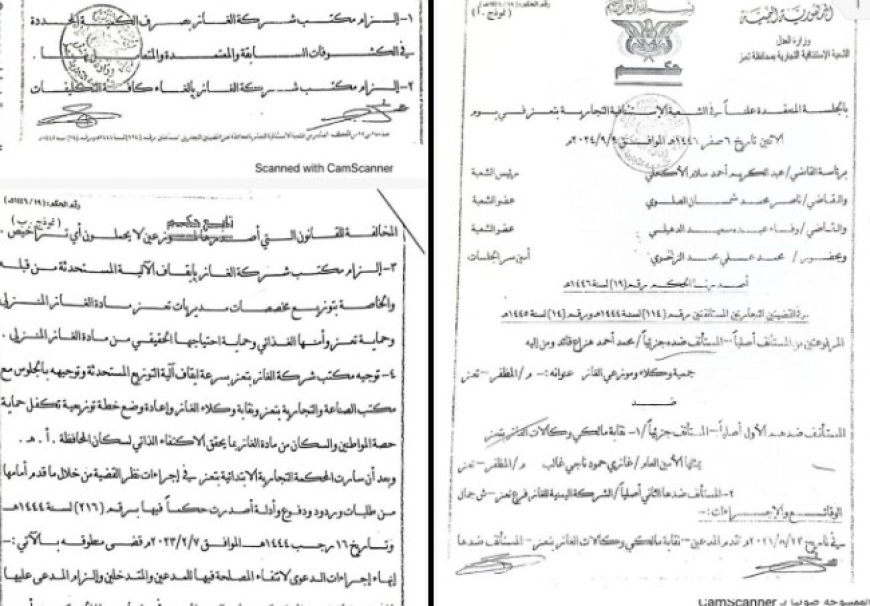 الجمهورية اليمنية
وزارة العدل
الشعبة الاستئنافية التجارية بمحافظة تعز
حكم
بالجلسة المنعقدة علناً في الشعبة الاستئنافية التجارية بتعز في يوم
الاثنين تاريخ ٦ صفر ١٤٤٦هـ الموافق ٢٠٢٤/٩/٩م
برئاسة القاضي/ عبدالكريم أحمد سلام الأكحلي رئيس الشعبة
والقاضي/ ناصر محمد شمان الصلوي عضو الشعبة
والقاضي/ وفاء عبده سعيد الدعيلي عضو الشعبة
وبحضور/ محمد علي محمد الراضوي أمين سر الجلسات
أصدرنا الحكم رقم (١٩) لسنة ١٤٤٦هـ
في القضيتين التجاريتين المستأنفتين رقم (١١٤) لسنة ١٤٤٤هـ ورقم (١٤) لسنة ١٤٤٥هـ
المرفوعتين من المستأنف أصلياً – المستأنف ضده جزئياً/ محمد أحمد هزاع قائد ومن إليه
جمعية وكلاء وموزعي الغاز عنوانه:- م/ المظفر – تعز
ضد
المستأنف ضدهم الأول أصلياً – المستأنف جزئياً/ ١- نقابة مالكي وكالات الغاز بتعز
يمثلها الأمين العام/ غازي حمود ناجي غالب م/ المظفر – تعز
٢- المستأنف ضدها الثاني أصلياً/ الشركة اليمنية للغاز فرع تعز – ش جمال
الوقائع والإجراءات:-
في تاريخ ٢٠٢١/٨/٢٣م تقدم المدعين – نقابة مالكي وكالات الغاز بتعز – المستأنف ضدها
الممسوحة ضوئيا بـ CamScanner
١- إلزام مكتب شركة الغاز بصرف الكمية المحددة
في الكشوفات السابقة والمعتمدة والمتعامل
٢- إلزام مكتب شركة الغاز بإلغاء كافة التكليفات
Scanned with CamScanner
رقم الحكم: (١٤٤٦/١٩هـ)
تابع حكم
(نموذج ب)
المخالفة للقانون التي أصدرها لموزعين لا يحملون أي تراخيص .
٣- إلزام مكتب شركة الغاز بإيقاف الآلية المستحدثة من قبله
والخاصة بتوزيع مخصصات مديريات تعز مادة الغاز المنزلي
وحماية تعز وأمنها الغذائي وحماية احتياجها الحقيقي من مادة الغاز المنزلي .
٤- توجيه مكتب شركة الغاز بتعز بسرعة إيقاف آلية التوزيع المستحدثة وتوجيهه بالجلوس مع
مكتب الصناعة والتجارية بتعز ونقابة وكلاء الغاز وإعادة وضع خطة توزيعية تكفل حماية
حصة المواطنين والسكان من مادة الغاز بما يحقق الاكتفاء الذاتي لسكان المحافظة . أ . هـ .
وبعد أن سارت المحكمة التجارية الابتدائية بتعز في إجراءات نظر القضية من خلال ما قدم أمامها
من طلبات وردود ودفوع وأدلة أصدرت حكماً فيها برقم (٢١٦) لسنة ١٤٤٤هـ
وتاريخ ١٦ رجب ١٤٤٤هـ الموافق ٢٠٢٣/٢/٧م قضى منطوقه بالآتي:-
إنهاء إجراءات الدعوى لانتفاء المصلحة فيها للمدعين والمتدخلين وإلزام المدعى عليها